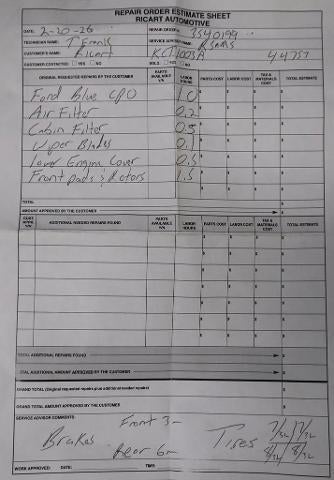 REPAIR ORDER ESTIMATE SHEET
RICART AUTOMOTIVE
DATE: 2-20-26 REPAIR ORDER#: 3540199
TECHNICIAN NAME: T Frank SERVICE ADVISOR NAME:
CUSTOMER'S NAME: Ricart 44757
CUSTOMER CONTACTED: YES NO SOLD: YES NO
ORIGINAL REQUESTED REPAIRS BY THE CUSTOMER PARTS AVAILABLE Y/N LABOR HOURS PARTS COST LABOR COST TAX & MATERIALS COST TOTAL ESTIMATE
Ford Blue CPO 1.0 $ $ $ $
Air Filter 0.2 $ $ $ $
Cabin Filter 0.5 $ $ $ $
Wiper Blades 0.1 $ $ $ $
Lower Engine Cover 0.3 $ $ $ $
Front pads & Rotors 1.5 $ $ $ $
TOTAL $
AMOUNT APPROVED BY THE CUSTOMER $
CUST APPR ADDITIONAL NEEDED REPAIRS FOUND PARTS AVAILABLE Y/N LABOR HOURS PARTS COST LABOR COST TAX & MATERIALS COST TOTAL ESTIMATE
TOTAL ADDITIONAL REPAIRS FOUND $
TOTAL ADDITIONAL AMOUNT APPROVED BY THE CUSTOMER $
GRAND TOTAL (Original requested repairs plus additional needed repairs) $
GRAND TOTAL AMOUNT APPROVED BY THE CUSTOMER $
SERVICE ADVISOR COMMENTS:
Front 3m 7/32 7/32
Brakes Tires
Rear 6m 8/32 8/32
WORK APPROVED: DATE: TIME: